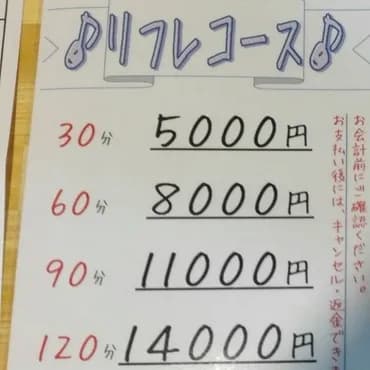 ♪リフレコース♪
30分 5000円
60分 8000円
90分 11000円
120分 14000円
お会計前にご確認ください。
お支払い後には、キャンセル・返金でき